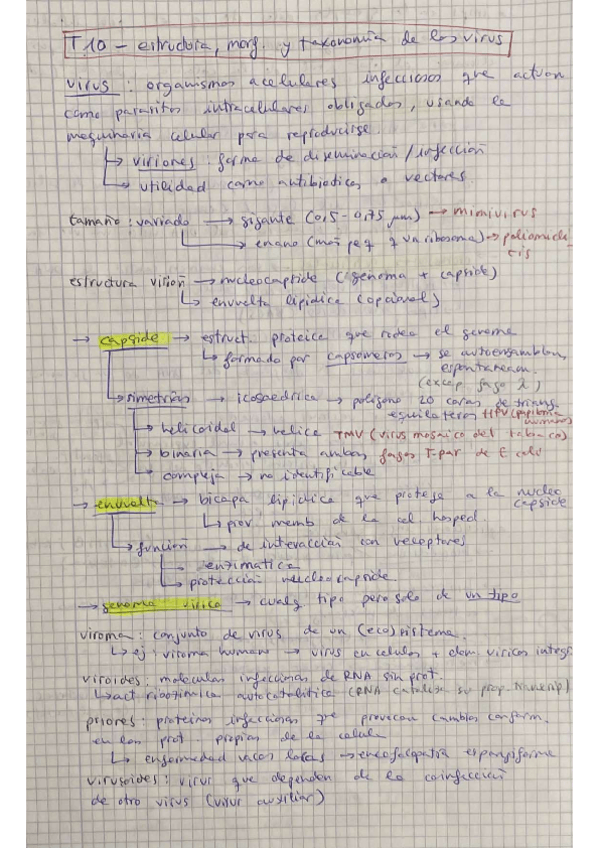 T.10 - estructura, morf. y taxonomía de los virus
virus: organismos acelulares infecciosos que actúan
como parásitos intracelulares obligados, usando la
maquinaria celular para reproducirse.
↳ viriones: forma de diseminación/infección
↳ utilidad como antibioticos o vectores.
tamaño: variado → gigante (0,5-0,75 µm) → mimivirus
↳ enano (más peq q un ribosoma) →
estructura virión → nucleocapside (genoma + capside)
↳ envuelta lipídica (opcional)
→ capside → estruct. proteica que rodea el genoma
↳ formado por capsomeros → se autoensamblan,
(excep fago λ)
↳ simetrías → icosaedrica → polígono 20 caras de triang.
equilateros HPV (papiloma humano)
↳ helicoidal → helice TMV (virus mosaico del tabaco)
↳ binaria → presenta ambas fagos T-par de E coli
↳ compleja → no identificable
→ envuelta → bicapa lipídica que protege a la nucleo
capside
↳ memb de la cel hosped.
↳ función → de interacción con receptores
↳ enzimatica
↳ protección nucleocapside
→ genoma vírico → cualq. tipo pero solo de un tipo
viroma: conjunto de virus de un (eco)sistema.
↳ ej: viroma humano → virus en celulas + elem viricos integ
viroides: moleculas infecciosas de RNA sin prot.
↳ act ribozimica autocatalitica (RNA cataliza su prop. transcrip)
priones: proteinas infecciosas que provocan cambios conform.
en las prot. propias de la celula
↳ enfermedad vacas locas → encefalopatia espongiforme
virusoides: virus que dependen de la coinfección
de otro virus (virus auxiliar)